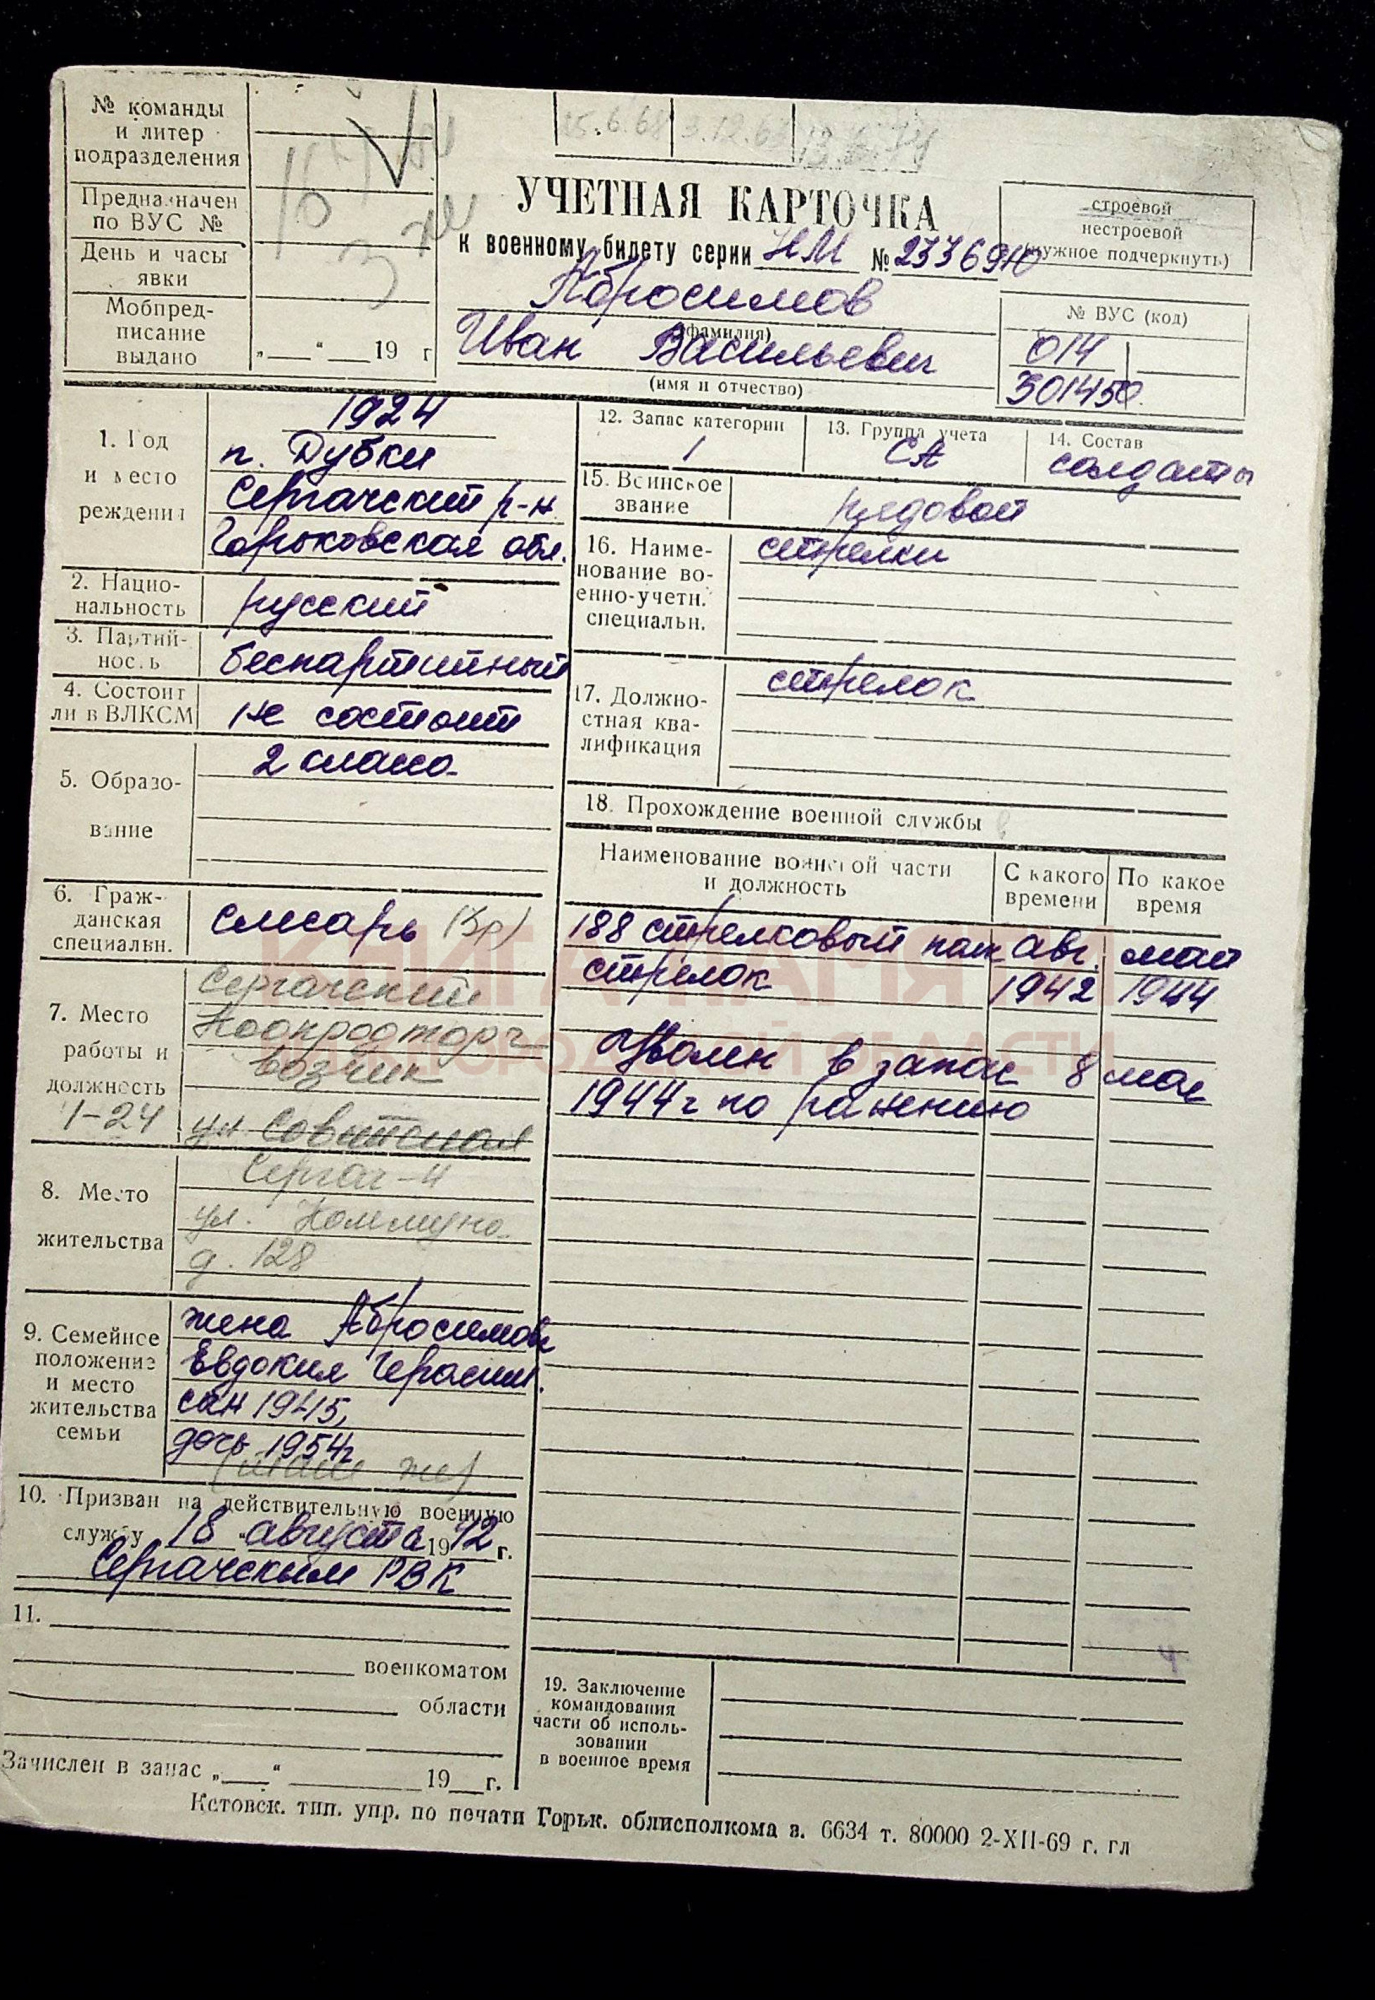 № команды
и литер
подразделения
Предназначен
по ВУС №
День и часы
явки
Мобпред-
писание
выдано
„ “ 19 г
15.6.68 3.12.68
УЧЕТНАЯ КАРТОЧКА
к военному билету серии НМ № 2336910
Абросимов
(фамилия)
Иван Васильевич
(имя и отчество)
строевой
нестроевой
(нужное подчеркнуть)
№ ВУС (код)
014
301450
1. Год
и место
рождения
1924
п. Дубки
Сергачский р-н
Горьковская обл.
2. Нацио-
нальность
русский
3. Партий-
ность
беспартийный
4. Состоит
ли в ВЛКСМ
не состоит
5. Образо-
вание
2 класс
6. Граж-
данская
специальн.
слесарь (3р)
7. Место
работы и
должность
1-24
Сергачский
возчик
ул Советская
8. Место
жительства
Сергач-4
ул. Коммуна
д. 128
9. Семейное
положение
и место
жительства
семьи
жена Абросимова
Евдокия Герасим.
сын 1945,
дочь 1954г
(там же)
10. Призван на действительную военную
службу 18 „августа 1942 г.
Сергачским РВК
11.
военкоматом
области
Зачислен в запас „ “ 19 г.
12. Запас категории
1
13. Группа учета
СА
14. Состав
солдаты
15. Воинское
звание
рядовой
16. Наиме-
нование во-
енно-учетн.
специальн.
стрелки
17. Должно-
стная ква-
лификация
стрелок
18. Прохождение военной службы
Наименование воинской части
и должность
С какого
времени
По какое
время
188 стрелковый полк авг. май
стрелок 1942 1944
Уволен в запас 8 мая
1944г по ранению
4
19. Заключение
командования
части об исполь-
зовании
в военное время
Кстовск. тип. упр. по печати Горьк. облисполкома з. 6634 т. 80000 2-XII-69 г. гл
КНИГА ПАМЯТИ
НИЖЕГОРОДСКОЙ ОБЛАСТИ